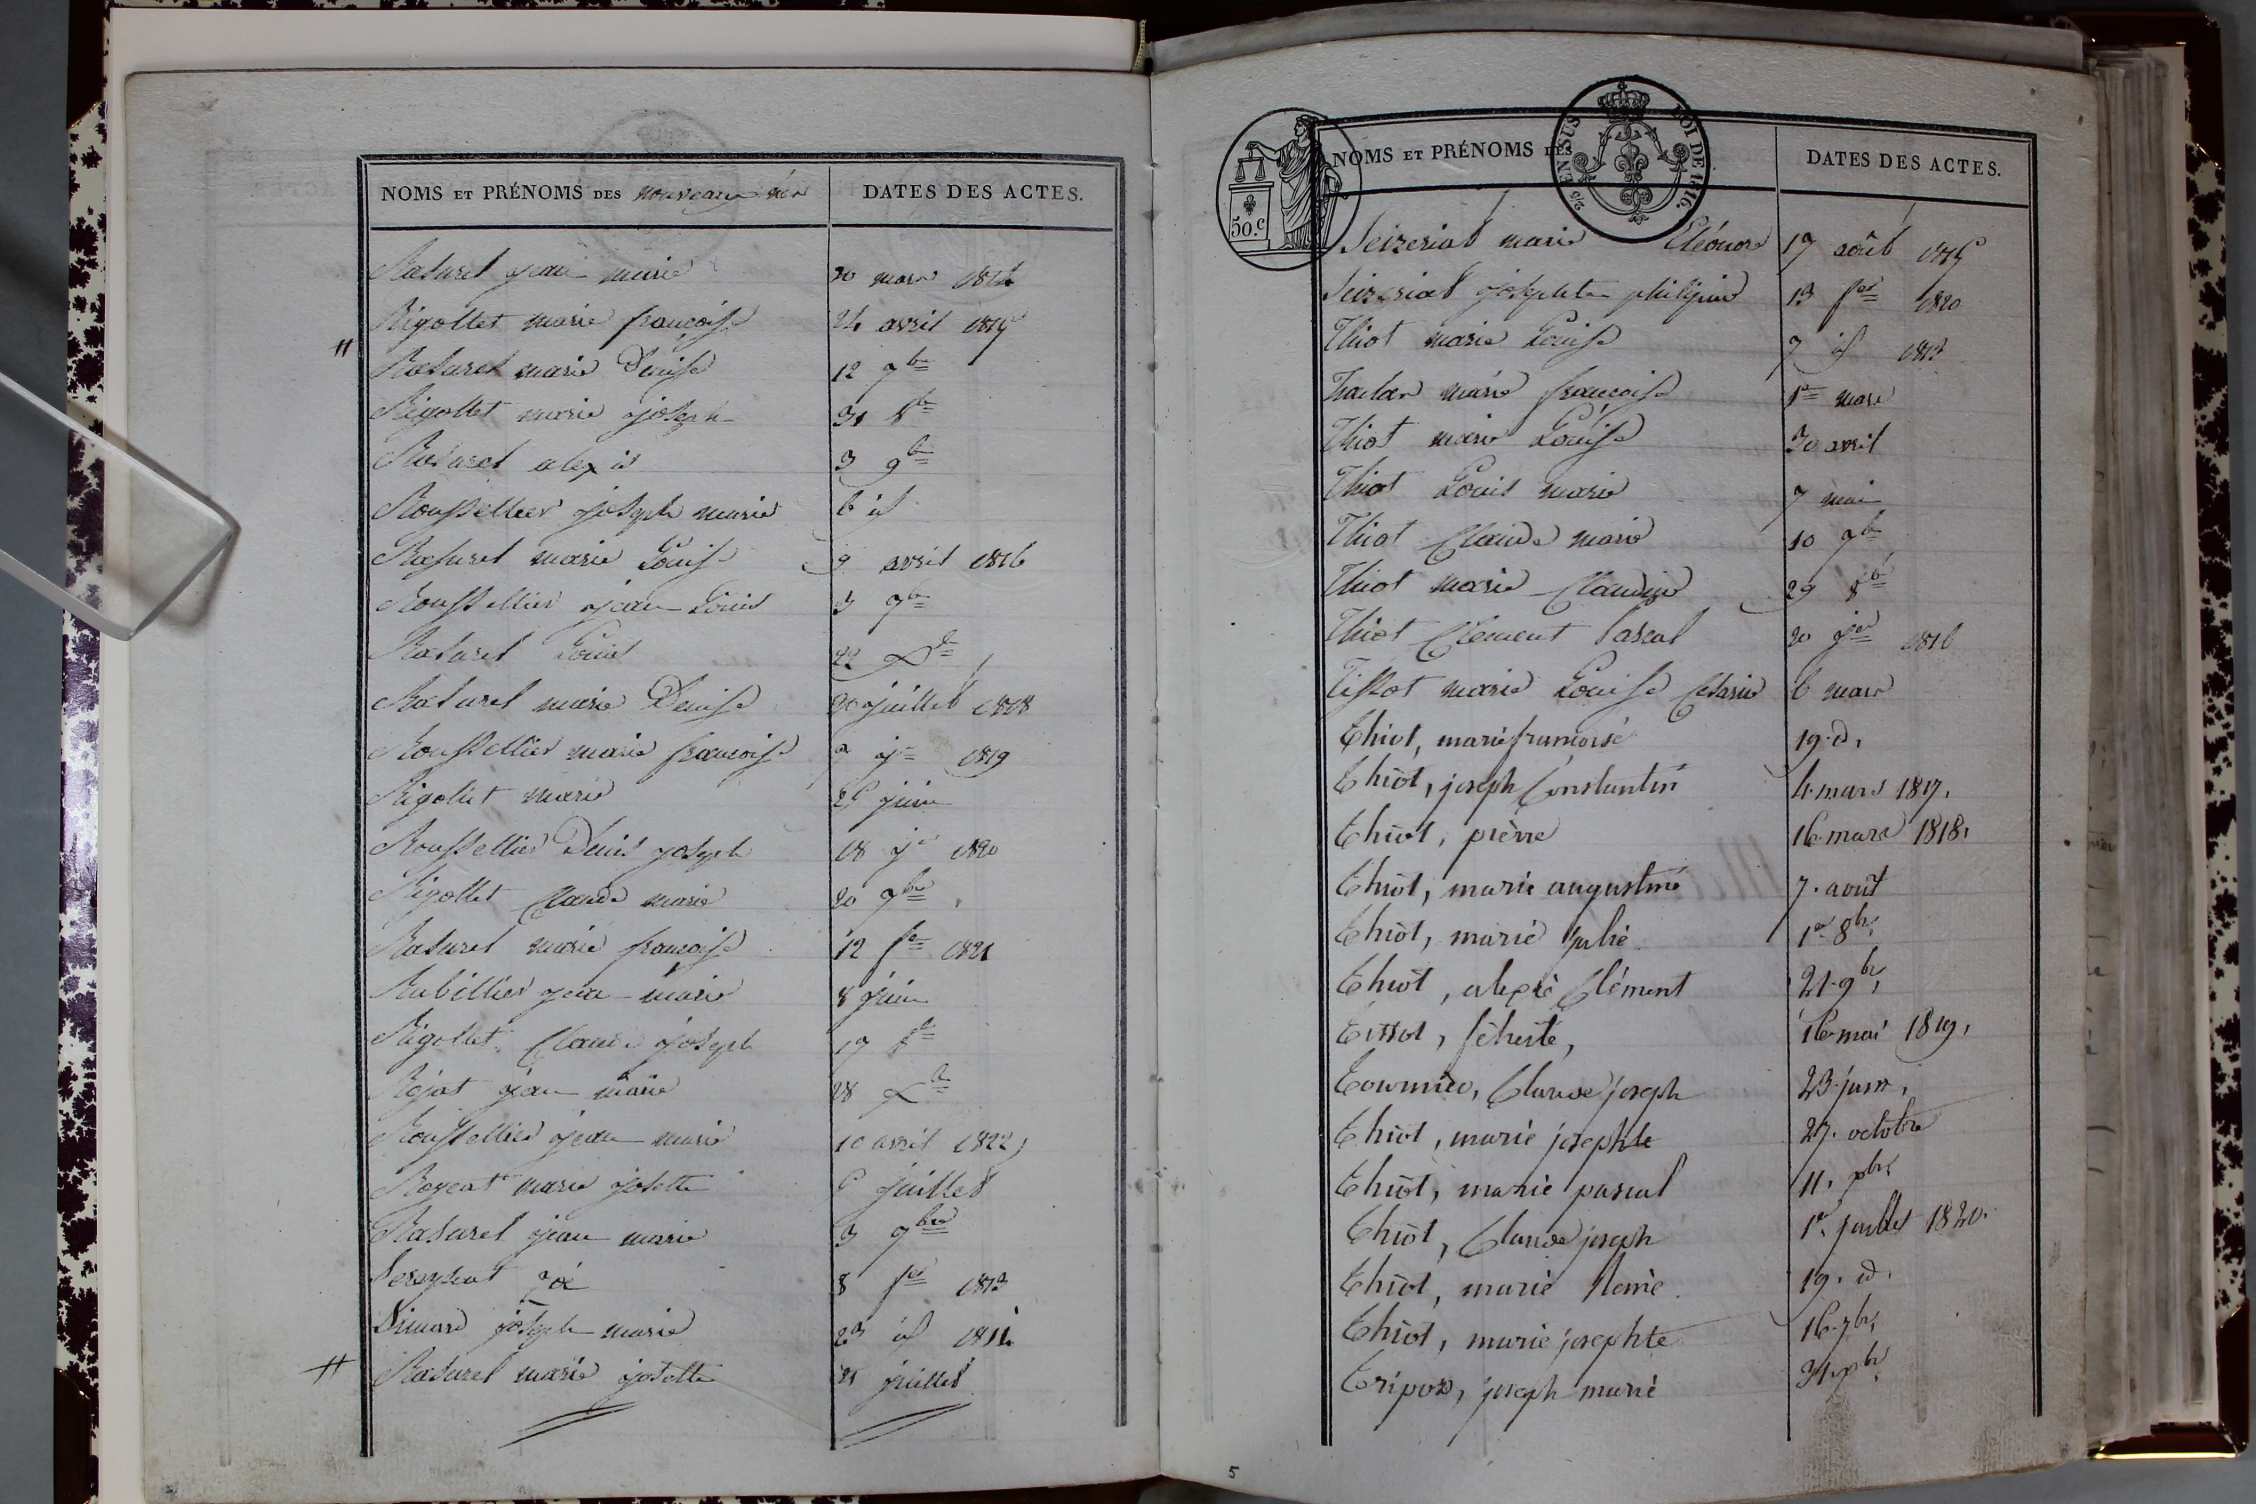 NOMS ET PRÉNOMS DES nouveaux nés DATES DES ACTES.
Rasurel jean marie 20 mars 1814
Rigollet marie françoise 24 avril 1815
Rasurel marie Denise 12 7bre
Rigollet marie joseph 31 8bre
Rasurel alexis 3 9bre
Roussellier joseph marie 6 id
Rasurel marie Louise 9 avril 1816
Roussellier jean Louis 3 7bre
Rasurel Louis 22 Xbre
Rasurel marie Denise 20 juillet 1818
Roussellier marie françoise jer 1819
Rigollet marie juin
Roussellier Denis joseph 18 jer 1820
Rigollet Claude marie 20 7bre
Rasurel marie françoise 12 fer 1821
Rubillier jean marie 8 juin
Rigollet Claude joseph 17 8bre
Rojat jean marie 28 Xbre
Roussellier jean marie 10 avril 1822
Royeat marie josette 6 juillet
Rasurel jean marie 3 9bre
zoé 8 fer 1813
joseph marie 23 id 1814
Rasurel marie josette 21 juillet
50.c
EN SUS LOI DE 1816.
NOMS ET PRÉNOMS DES DATES DES ACTES.
Seizeriat marie Eléonore 17 août 1815
Seizeriat josephte philipine 13 fer 1820
Thiot marie Louise 7 id 1813
marie françoise 1er mars
Thiot marie Louise 30 avril
Thiot Louis marie 7 mai
Thiot Claude marie 10 7bre
Thiot marie Claudine 29 8bre
Thiot Clément Pascal 20 jer 1816
Tissot marie Louise Césarie 6 mars
Thiot, marie françoise 19. d.
Thiot, joseph Constantin 4. mars 1817.
Thiot, pierre 16. mars 1818.
Thiot, marie augustine 7. août
Thiot, marie julie 1er 8bre
Thiot, alexis Clément 21. 9bre
Tissot, félicité, 16 mai 1819.
Tournier, Claude joseph 23. juin.
Thiot, marie josephte 27. octobre
Thiot, marie pascal 11. xbre
Thiot, Claude joseph 1er juillet 1820.
Thiot, marie Reine 19. id.
Thiot, marie josephte 16. 7bre
Tripoz, joseph marie 31. xbre
5